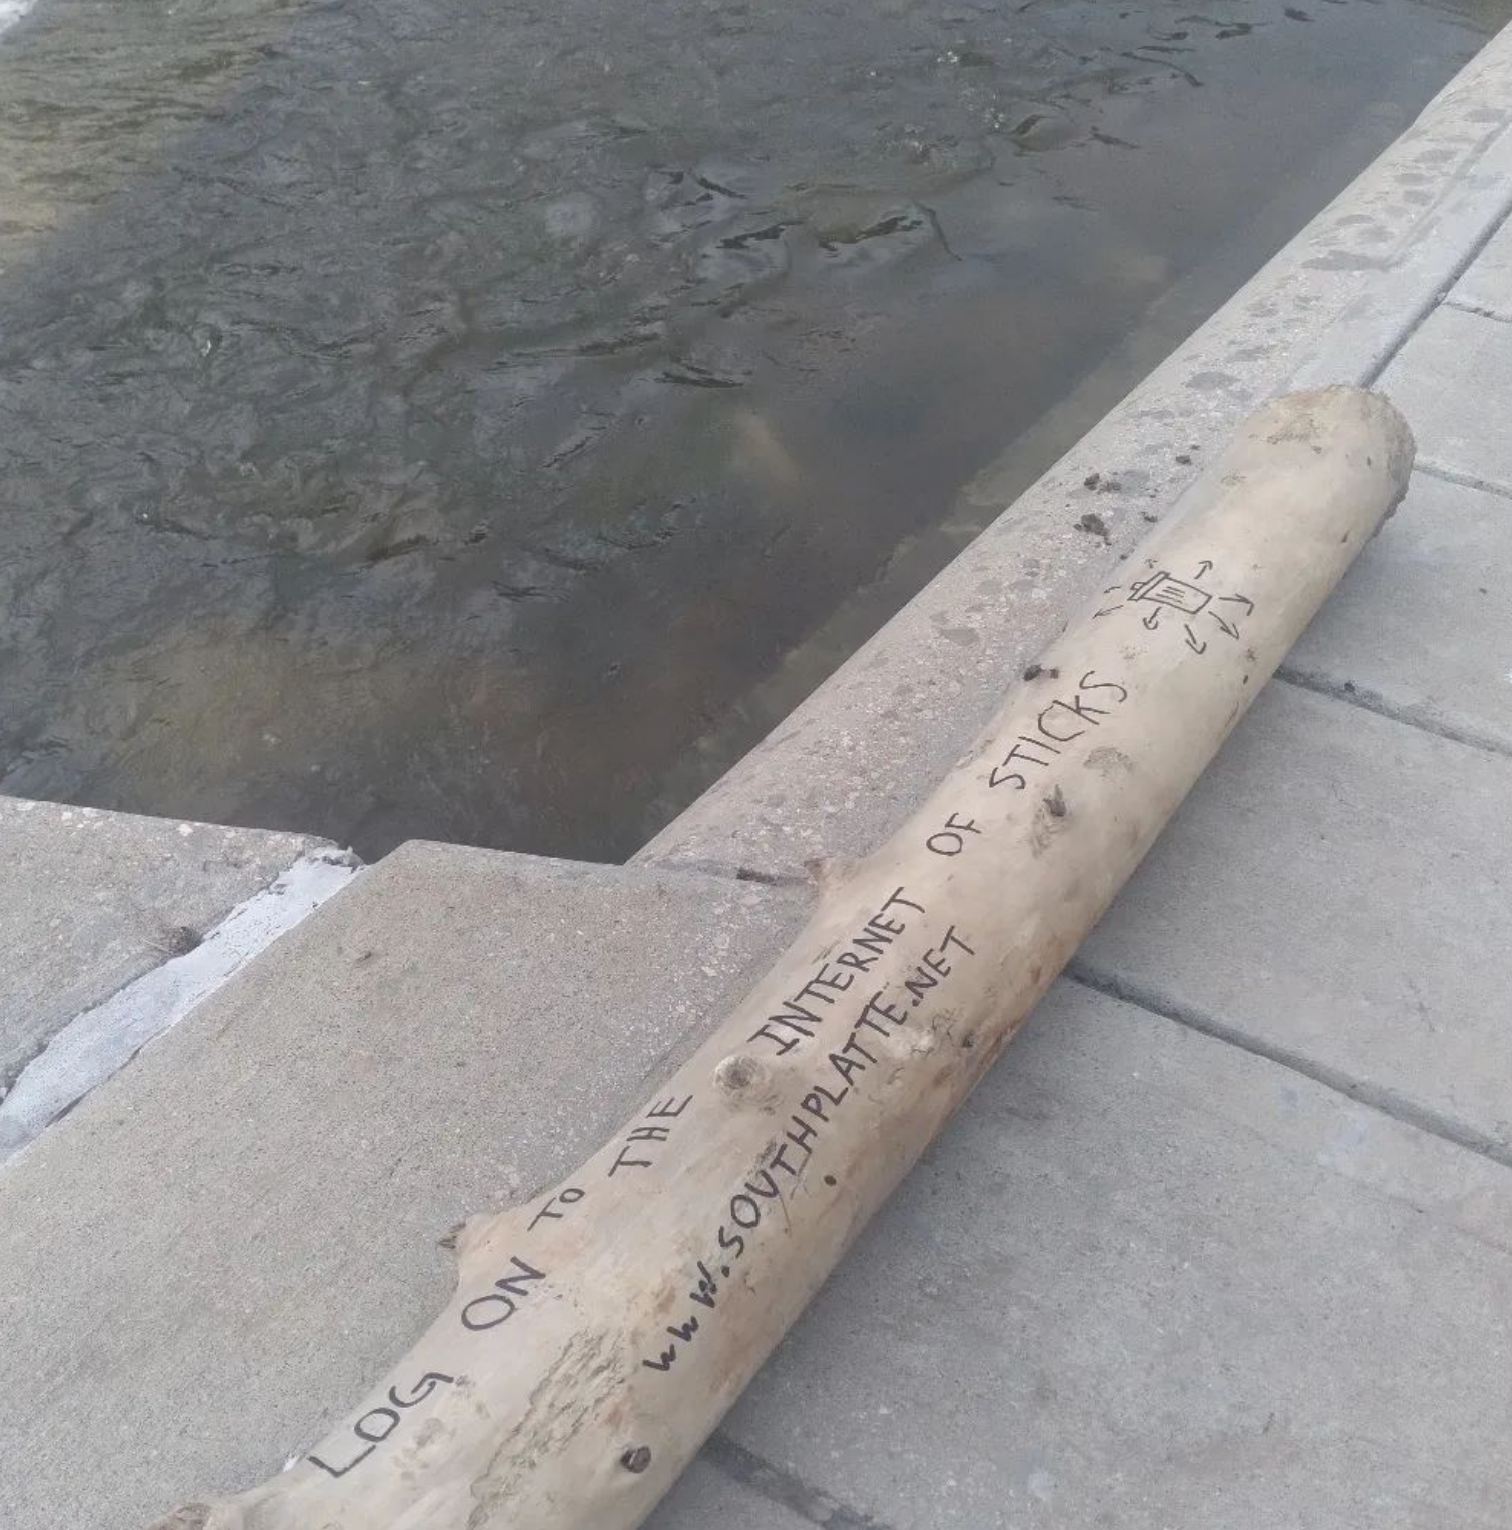 LOG ON TO THE INTERNET OF STICKS
www.SOUTHPLATTE.NET